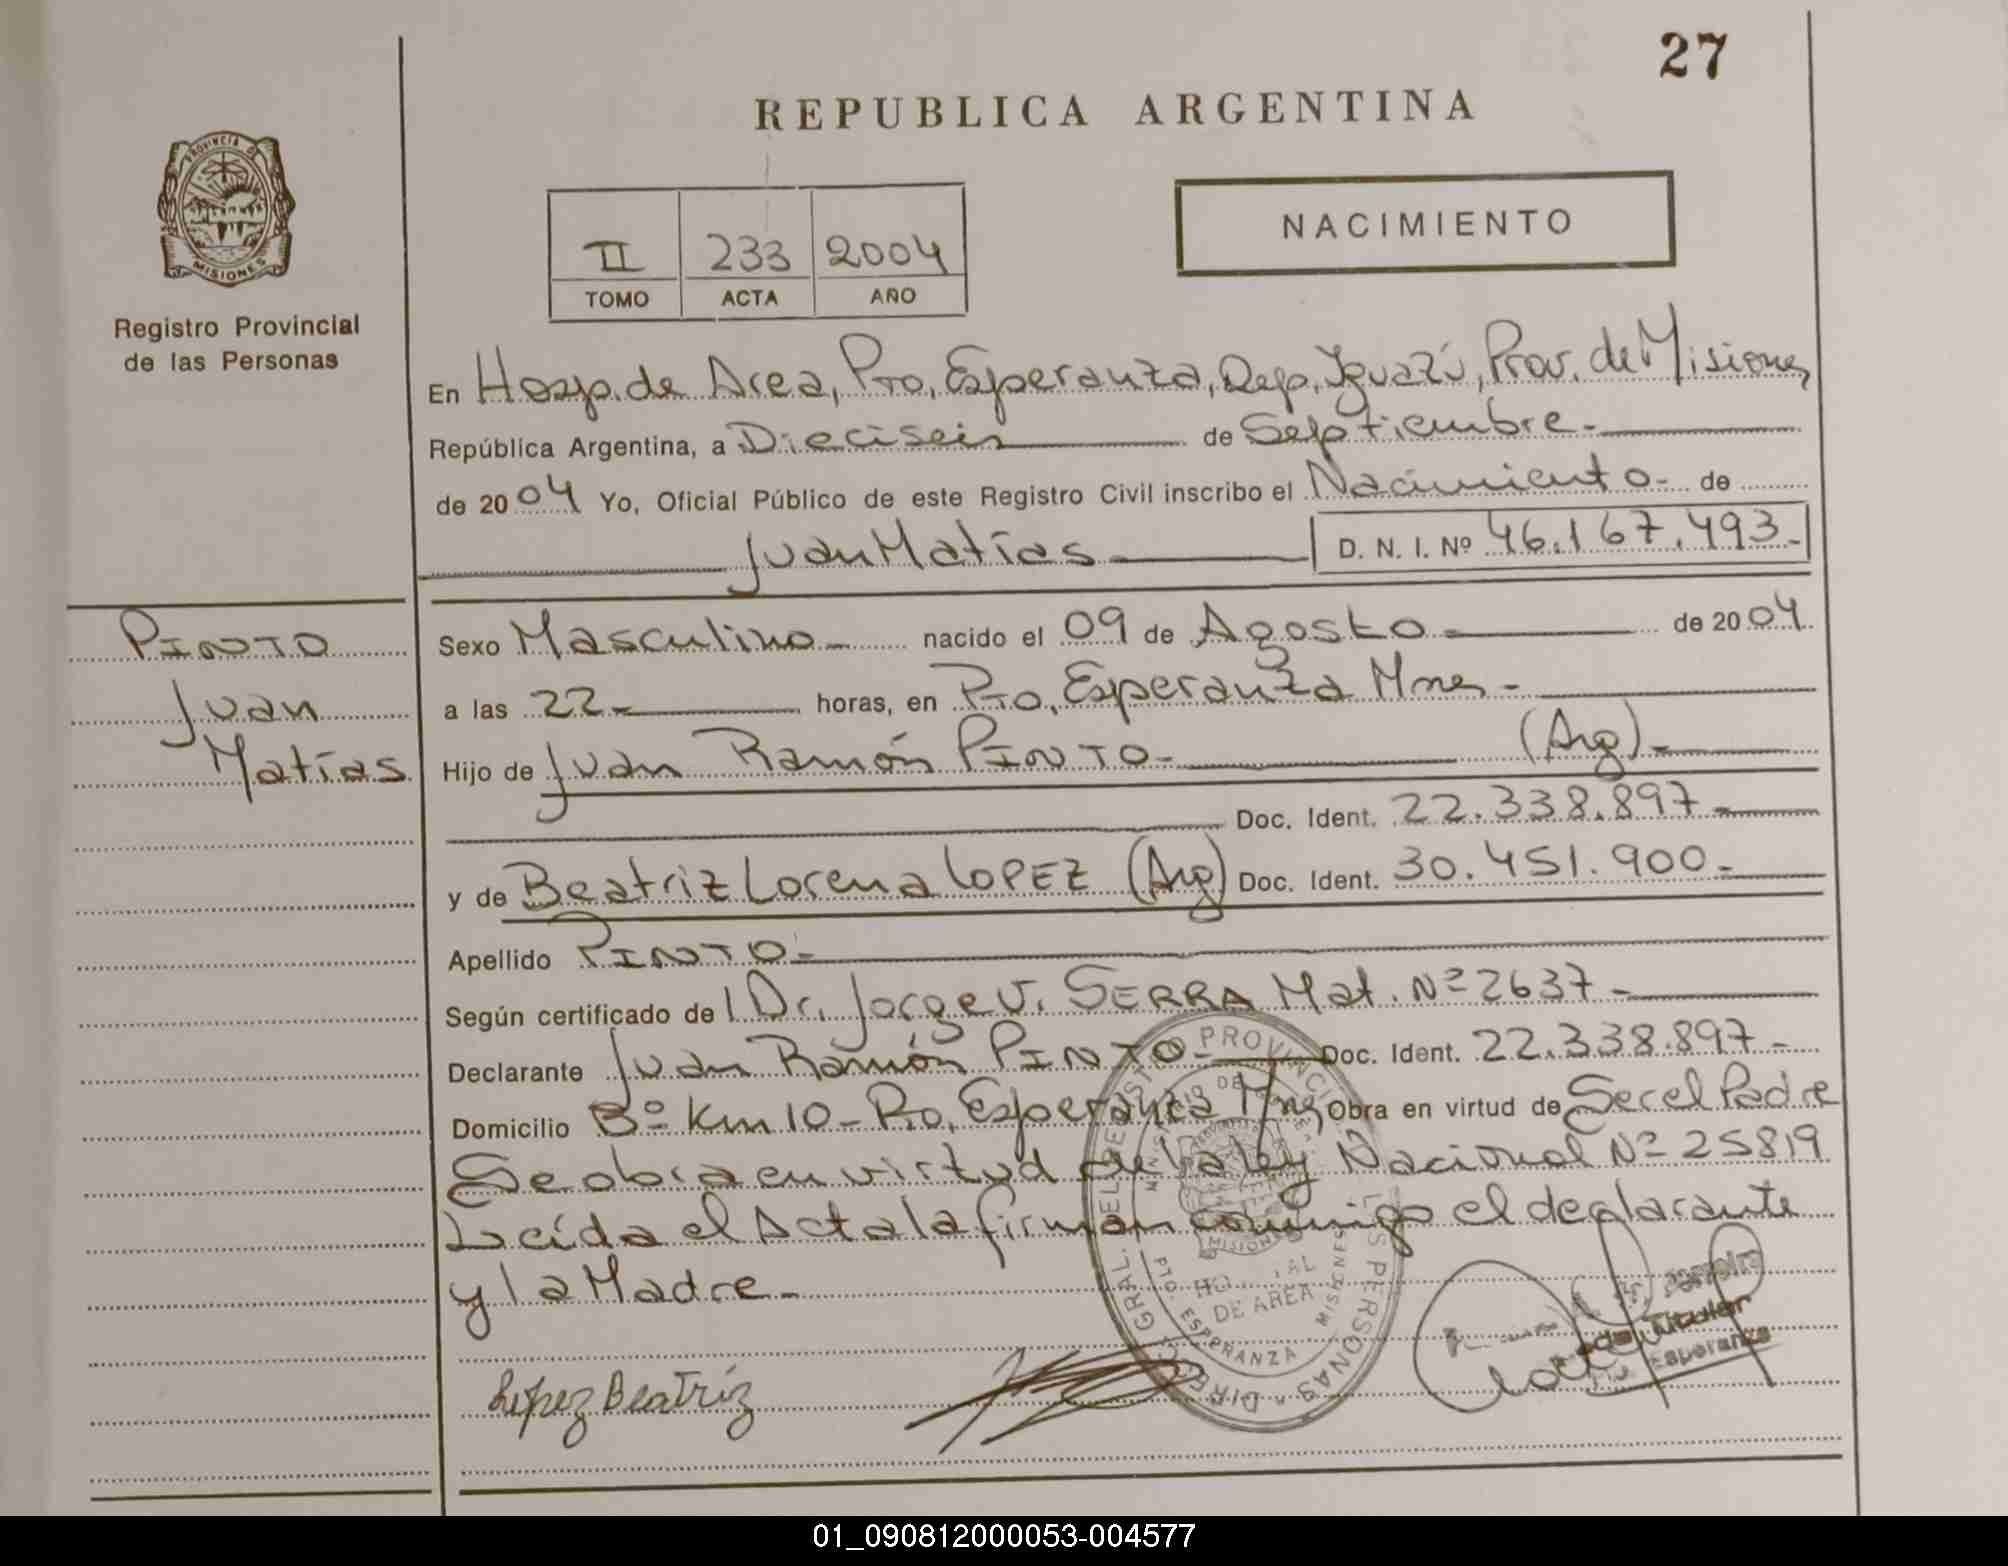 27
REPUBLICA ARGENTINA
PROVINCIA DE
MISIONES
Registro Provincial
de las Personas
II 233 2004
TOMO ACTA AÑO
NACIMIENTO
En Hosp. de Area, Pto. Esperanza, Dep. Iguazú, Prov. de Misiones
República Argentina, a Dieciseis de Septiembre.-
de 2004 Yo, Oficial Público de este Registro Civil inscribo el Nacimiento- de
Juan Matías D. N. I. Nº 46.167.493.-
PINTO
Juan
Matías
Sexo Masculino- nacido el 09 de Agosto- de 2004
a las 22- horas, en Pto. Esperanza Mnes-
Hijo de Juan Ramón PINTO- (Arg)-
Doc. Ident. 22.338.897-
y de Beatriz Lorena LOPEZ (Arg) Doc. Ident. 30.451.900-
Apellido PINTO-
Según certificado de l Dr. Jorge V. SERRA Mat. Nº 2637-
Declarante Juan Ramón PINTO- Doc. Ident. 22.338.897-
Domicilio Bº Km 10- Pto. Esperanza Mnes Obra en virtud de Ser el Padre
Se obra en virtud de la ley Nacional Nº 25819
Leída el Acta la firman conmigo el declarante
y la Madre-
HOSPITAL
DE AREA
PTO. ESPERANZA MISIONES
López Beatríz
Titular
Esperanza
01_090812000053-004577